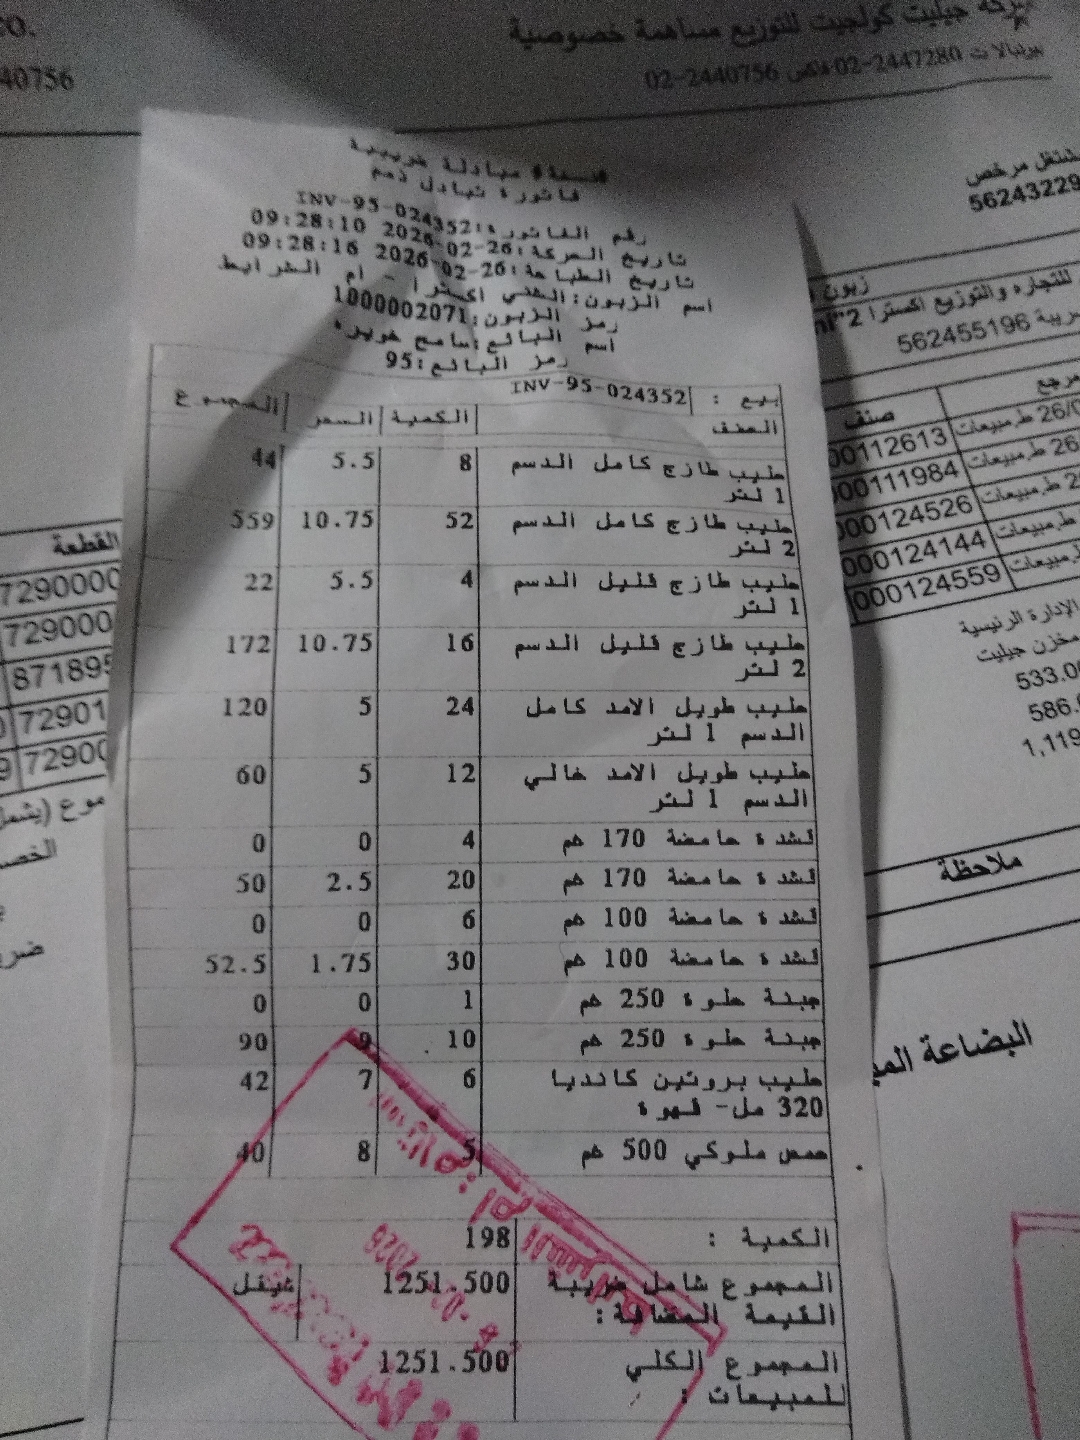 شركة جيليت كولجيت للتوزيع مساهمة خصوصية
CO.
02-2447280 فاكس 02-2440756
40756
مشتغل مرخص
56243229
نسخة مبادلة ضريبية
فاتورة تبادل ذمم
رقم الفاتورة:INV-95-024352
تاريخ الحركة:2026-02-26 09:28:10
تاريخ الطباعة:2026-02-26 09:28:16
اسم الزبون:الشني اكسترا - ام الشرايط
رمز الزبون:1000002071
اسم البائع:سامح هريره
رمز البائع:95
بيع : INV-95-024352
الصنف الكمية السعر المجموع
حليب طازج كامل الدسم 8 5.5 44
1 لتر
حليب طازج كامل الدسم 52 10.75 559
2 لتر
حليب طازج قليل الدسم 4 5.5 22
1 لتر
حليب طازج قليل الدسم 16 10.75 172
2 لتر
حليب طويل الامد كامل 24 5 120
الدسم 1 لتر
حليب طويل الامد خالي 12 5 60
الدسم 1 لتر
قشدة حامضة 170 غم 4 0 0
قشدة حامضة 170 غم 20 2.5 50
قشدة حامضة 100 غم 6 0 0
قشدة حامضة 100 غم 30 1.75 52.5
جبنة حلوة 250 غم 1 0 0
جبنة حلوة 250 غم 10 9 90
حليب بروتين كانديا 6 7 42
320 مل- قهوة
حمص ملوكي 500 غم 5 8 40
الكمية : 198
المجموع شامل ضريبة 1251.500 شيقل
القيمة المضافة:
المجموع الكلي 1251.500
للمبيعات :
زبون
للتجاره والتوزيع اكسترا 2
562455196
مرجع
صنف
00112613 ط.مبيعات
000111984 ط.مبيعات
000124526 ط.مبيعات
000124144 ط.مبيعات
000124559 ط.مبيعات
الإدارة الرئيسية
مخزن جيليت
533.0
586.
1,119
ملاحظة
القطعة
7290000
729000
871895
72901
7290
موع (يشمل
الخص
ضر
البضاعة المبي